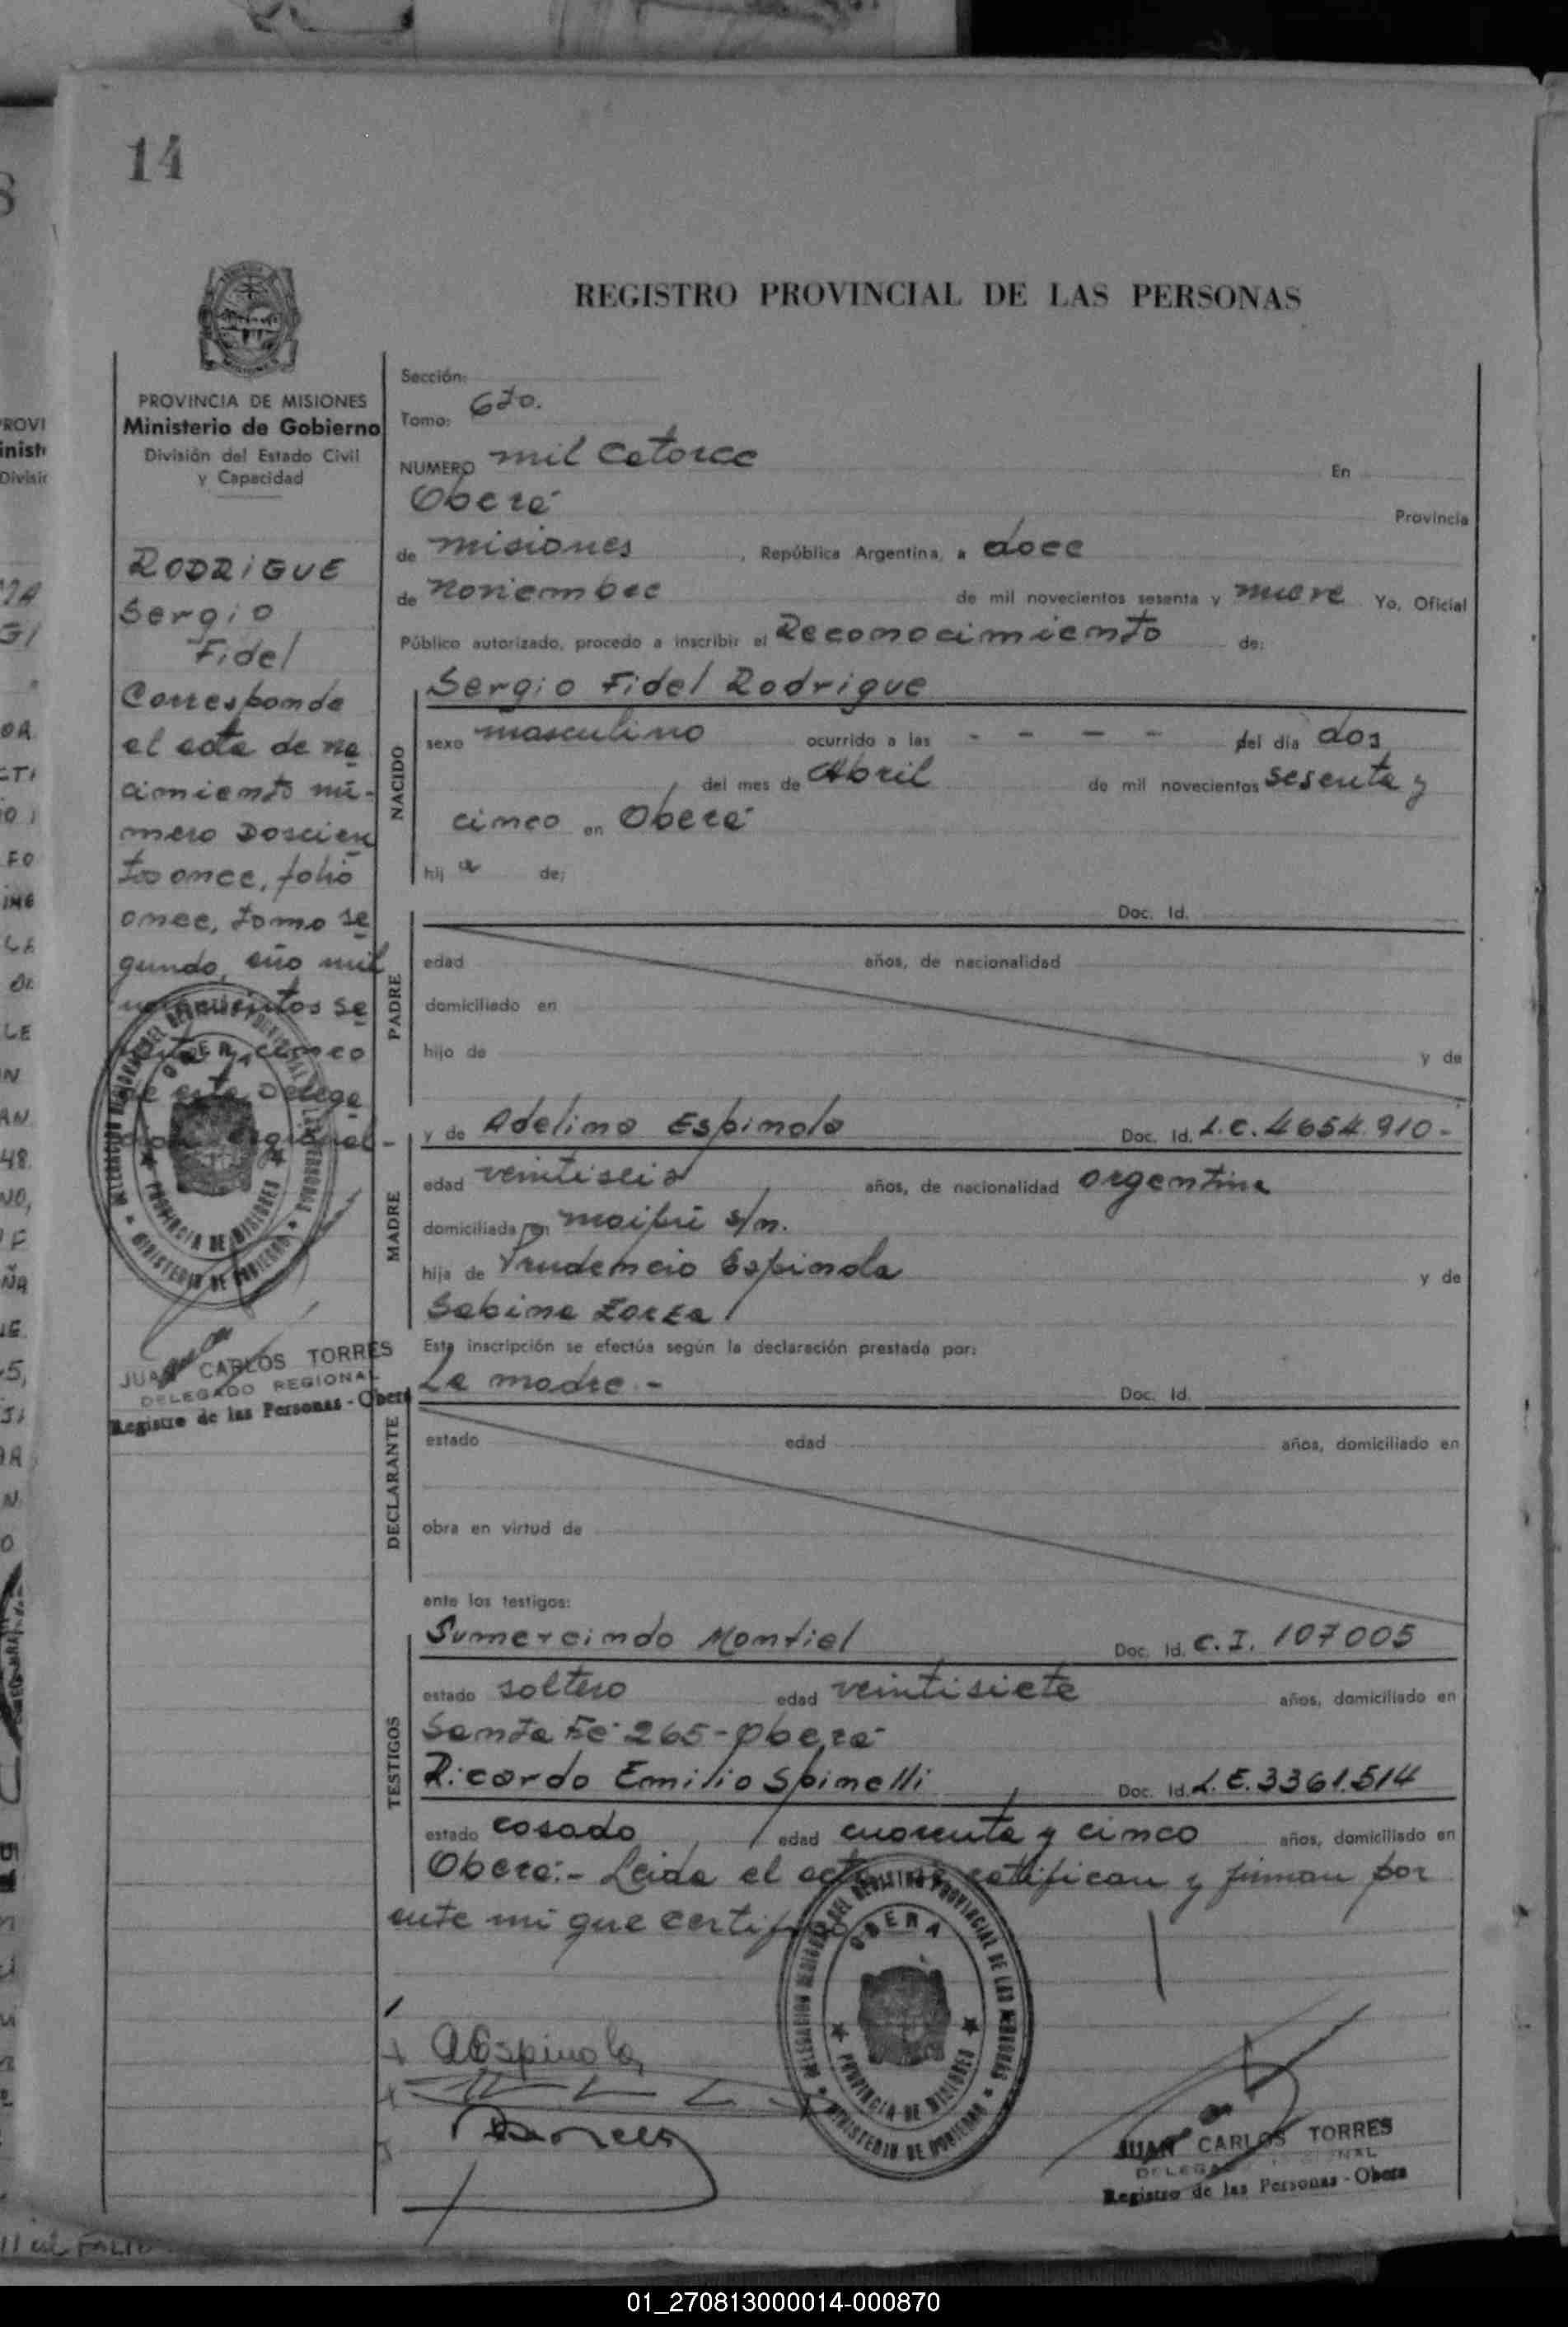 14
REGISTRO PROVINCIAL DE LAS PERSONAS
PROVINCIA DE MISIONES
Ministerio de Gobierno
División del Estado Civil
y Capacidad
RODRIGUE
Sergio
Fidel
Corresponde
al acta de na
cimiento nú-
mero Doscien
tos once, folio
once, tomo se
gundo, año mil
novecientos se
senta y cinco
de esta Delega
ción Regional-
JUAN CARLOS TORRES
DELEGADO REGIONAL
Registro de las Personas - Oberá
Sección:
Tomo: 6to.
NUMERO mil catorce En
Oberá Provincia
de misiones, República Argentina, a doce
de noviembre de mil novecientos sesenta y nueve Yo, Oficial
Público autorizado, procedo a inscribir el Reconocimiento de:
Sergio Fidel Rodrigue
NACIDO
sexo masculino ocurrido a las - - - - del día dos
del mes de Abril de mil novecientos sesenta y
cinco en Oberá
hij o de:
PADRE
Doc. Id.
edad años, de nacionalidad
domiciliado en
hijo de y de
MADRE
y de Adelina Espinola Doc. Id. L.C. 4654.910-
edad veintiseis años, de nacionalidad argentina
domiciliada en maipú s/n.
hija de Prudencio Espinola y de
Sabina Zorza
Esta inscripción se efectúa según la declaración prestada por:
La madre.- Doc. Id.
DECLARANTE
estado edad años, domiciliado en
obra en virtud de
ante los testigos:
TESTIGOS
Sumercindo Montiel Doc. Id. C.I. 107005
estado soltero edad veintisiete años, domiciliado en
Santa Fé 265-Oberá
Ricardo Emilio Spinelli Doc. Id. L.E. 3361.514
estado casado edad cuarenta y cinco años, domiciliado en
Oberá.- Leida el acta se ratifican y firman por
ante mi que certifico
DELEGACION REGIONAL DEL REGISTRO PROVINCIAL DE LAS PERSONAS
OBERA
PROVINCIA DE MISIONES
MINISTERIO DE GOBIERNO
AEspinola
JUAN CARLOS TORRES
DELEGADO REGIONAL
Registro de las Personas - Oberá
01_270813000014-000870